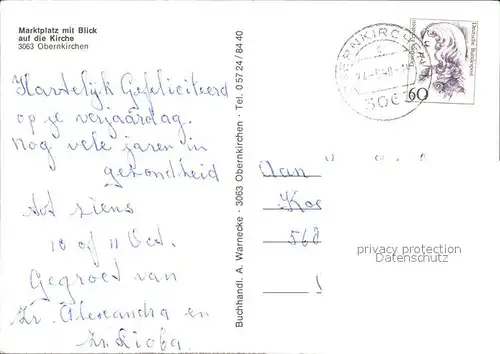 Marktplatz mit Blick
auf die Kirche
3063 Obernkirchen
Hartelijk Gefeliciteerd
op je verjaardag.
Nog vele jaren in
gezondheid
tot ziens
10 of 11 Oct.
Gegroet van
Zr. Alexandra en
Zr. Lioba.
Buchhandl. A. Warnecke · 3063 Obernkirchen · Tel. 0 57 24 / 84 40
Deutsche Bundespost
60
Aan
Koe
568
privacy protection
Datenschutz